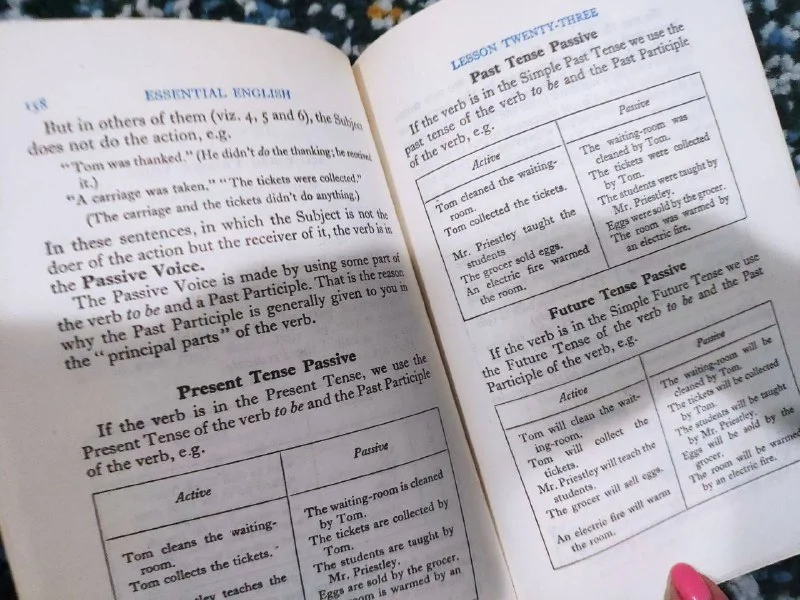 158
ESSENTIAL ENGLISH
But in others of them (viz. 4, 5 and 6), the Subject
does not do the action, e.g.
"Tom was thanked." (He didn't do the thanking; he received
it.)
"A carriage was taken." "The tickets were collected."
(The carriage and the tickets didn't do anything.)
In these sentences, in which the Subject is not the
doer of the action but the receiver of it, the verb is in
the Passive Voice.
The Passive Voice is made by using some part of
the verb to be and a Past Participle. That is the reason
why the Past Participle is generally given to you in
the "principal parts" of the verb.
Present Tense Passive
If the verb is in the Present Tense, we use the
Present Tense of the verb to be and the Past Participle
of the verb, e.g.
Active
Tom cleans the waiting-
room.
Tom collects the tickets.
teaches the
Passive
The waiting-room is cleaned
by Tom.
The tickets are collected by
Tom.
The students are taught by
Mr. Priestley.
Eggs are sold by the grocer.
room is warmed by an
LESSON TWENTY-THREE
Past Tense Passive
If the verb is in the Simple Past Tense we use the
past tense of the verb to be and the Past Participle
of the verb, e.g.
Active
Tom cleaned the waiting-
room.
Tom collected the tickets.
Mr. Priestley taught the
students
The grocer sold eggs.
An electric fire warmed
the room.
Passive
The waiting-room was
cleaned by Tom.
The tickets were collected
by Tom.
The students were taught by
Mr. Priestley.
Eggs were sold by the grocer.
The room was warmed by
an electric fire.
Future Tense Passive
If the verb is in the Simple Future Tense we use
the Future Tense of the verb to be and the Past
Participle of the verb, e.g.
Active
Tom will clean the wait-
ing-room.
Tom will collect the
tickets.
Mr. Priestley will teach the
students.
The grocer will sell eggs.
An electric fire will warm
the room.
Passive
The waiting-room will be
cleaned by Tom.
The tickets will be collected
by Tom.
The students will be taught
by Mr. Priestley.
Eggs will be sold by the
grocer.
The room will be warmed
by an electric fire.